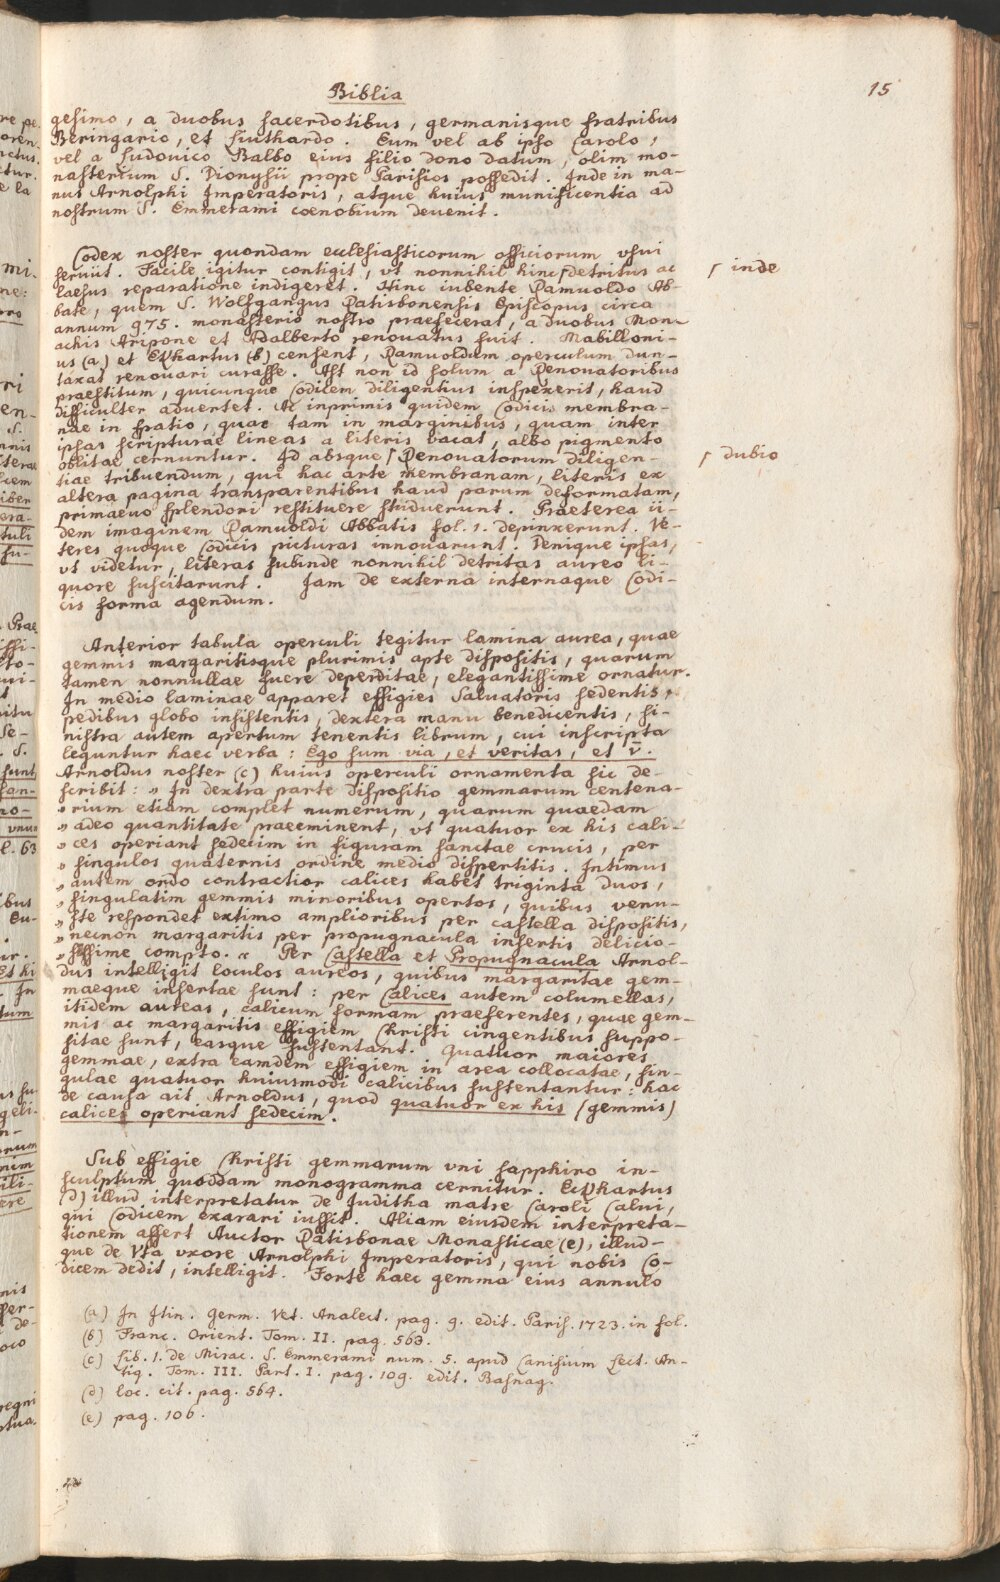 Biblia
15
gesimo, a duobus sacerdotibus, germanisque fratribus
Beringario, et Liuthardo. Eum vel ab ipso Carolo,
vel a Ludouico Balbo eius filio dono datum, olim mo-
nasterium S. Dionysii prope Parisios possedit. Inde in ma-
nus Arnolphi Imperatoris, atque huius munificentia ad
nostrum S. Emmerami coenobium deuenit.
Codex noster quondam ecclesiasticorum officiorum vsui
seruiit. Facile igitur contigit, vt nonnihil hinc ⌈ detritus ac
⌈ inde
laesus reparatione indigeret. Hinc iubente Ramuoldo Ab-
bate, quem S. Wolfgangus Ratisbonensis Episcopus circa
annum 975. monasterio nostro praefecerat, a duobus Mon-
achis Aripone et Adalberto renouatus fuit. Mabilloni-
us (a) et Eckhartus (b) censent, Ramuoldum operculum dun-
taxat renouari curasse. Ast non id solum a Renouatoribus
praestitum, quicunque Codicem diligentius inspexerit, haud
difficulter aduertet. Ac inprimis quidem Codicis membra-
nae in spatio, quae tam in marginibus, quam inter
ipsas scripturae lineas a literis vacat, albo pigmento
oblitae cernuntur. Id absque ⌈ Renouatorum diligen-
⌈ dubio
tiae tribuendum, qui hac arte membranam, literis ex
altera pagina transparentibus haud parum deformatam,
primaeuo splendori restituere studuerunt. Praeterea ii-
dem imaginem Ramuoldi Abbatis fol. 1. depinxerunt. Ve-
teres quoque Codicis picturas innouarunt. Denique ipsas,
vt videtur, literas subinde nonnihil detritas aureo li-
quore suscitarunt. Iam de externa internaque Codi-
cis forma agendum.
Anterior tabula operculi tegitur lamina aurea, quae
gemmis margaritisque plurimis apte dispositis, quarum
tamen nonnullae fuere deperditae, elegantissime ornatur.
In medio laminae apparet effigies Saluatoris sedentis,
pedibus globo insistentis, dextera manu benedicentis, si-
nistra autem apertum tenentis librum, cui inscripta
leguntur haec verba: Ego sum via, et veritas, et v.
Arnoldus noster (c) huius operculi ornamenta sic de-
scribit: „ In dextra parte dispositio gemmarum centena-
„ rium etiam complet numerum, quarum quaedam
„ adeo quantitate praeeminent, vt quatuor ex his cali-
„ ces operiant sedecim in figuram sanctae crucis, per
„ singulos quaternis ordine medio dispertitis. Intimus
„ autem ordo contractior calices habet triginta duos,
„ singulatim gemmis minoribus opertos, quibus venu-
„ ste respondet extimo amplioribus per castella dispositis,
„ necnon margaritis per propugnacula insertis delicio-
„ sissime compto. “ Per Castella et Propugnacula Arnol-
dus intelligit loculos aureos, quibus margaritae gem-
maeque insertae sunt: per Calices autem columellas,
itidem aureas, calicum formam praeferentes, quae gem-
mis ac margaritis effigiem Christi cingentibus suppo-
sitae sunt, easque sustentant. Quatuor maiores
gemmae, extra eamdem effigiem in area collocatae, sin-
gulae quatuor huiusmodi calicibus sustentantur: hac
de causa ait Arnoldus, quod quatuor ex his (gemmis)
calices operiant sedecim.
Sub effigie Christi gemmarum vni sapphiro in-
sculptum quoddam monogramma cernitur. Eckhartus
(d) illud interpretatur de Juditha matre Caroli Calui,
qui Codicem exarari iussit. Aliam eiusdem interpreta-
tionem affert Auctor Ratisbonae Monasticae (e), illud-
que de Vta vxore Arnolphi Imperatoris, qui nobis Co-
dicem dedit, intelligit. Forte haec gemma eius annulo
(a) In Itin. Germ. Vet. Analect. pag. 9. edit. Paris. 1723. in fol.
(b) Franc. Orient. Tom. II. pag. 563.
(c) Lib. 1. de Mirac. S. Emmerami num. 5. apud Canisium Lect. An-
tiq. Tom. III. Part. I. pag. 109. edit. Basnag.
(d) loc. cit. pag. 564.
(e) pag. 106.